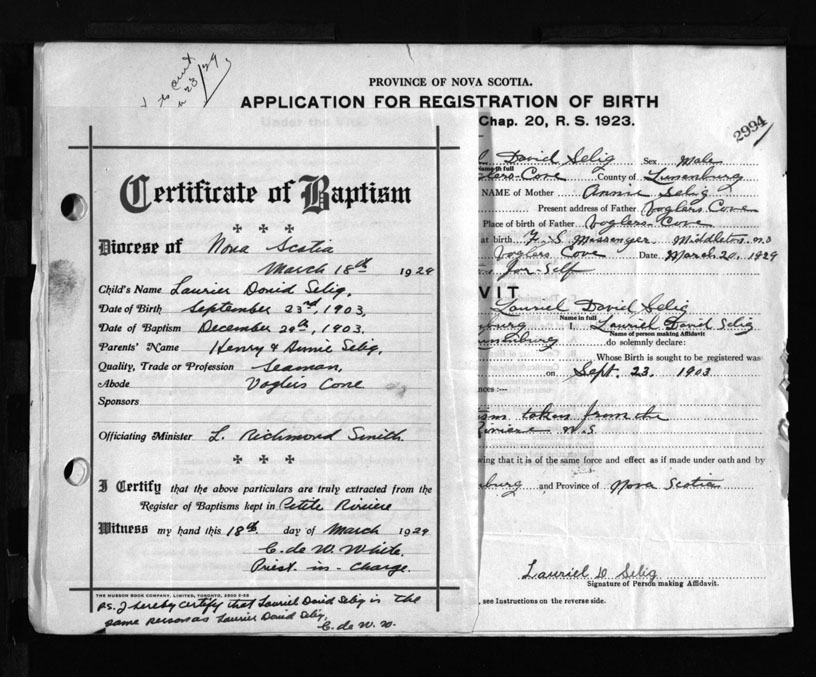 PROVINCE OF NOVA SCOTIA.
APPLICATION FOR REGISTRATION OF BIRTH
Chap. 20, R. S. 1923.
2994
Certificate of Baptism
Diocese of Nova Scotia
March 18th 1929
Child's Name Laurier David Selig,
Date of Birth September 23rd, 1903,
Date of Baptism December 29th, 1903.
Parents' Name Henry & Annie Selig,
Quality, Trade or Profession Seaman,
Abode Voglers Cove
Sponsors
Officiating Minister L. Richmond Smith
I Certify that the above particulars are truly extracted from the
Register of Baptisms kept in Petite Riviere
Witness my hand this 18th. day of March 1929
C. de W. White.
Priest-in-Charge.
THE MUSSON BOOK COMPANY, LIMITED, TORONTO,
PS. I hereby certify that Lauriel David Selig is the
same person as Laurier David Selig,
C. de W. W.
David Selig Sex Male
Name in full
glers Cove County of Lunenburg
NAME of Mother Annie Selig
Present address of Father Voglers Cove
Place of birth of Father Voglers Cove
at birth F. S. Messenger Middleton N.S
Voglers Cove Date March 20, 1929
for Self
VIT
Lauriel David Selig
Name in full
nburg I, Lauriel David Selig
Name of person making Affidavit
Lunenburg do solemnly declare:
Whose Birth is sought to be registered was
on Sept. 23. 1903
nces:—
ism taken from the
Riviere N.S.
wing that it is of the same force and effect as if made under oath and by
nburg and Province of Nova Scotia
Lauriel D Selig
Signature of Person making Affidavit.
, see Instructions on the reverse side.